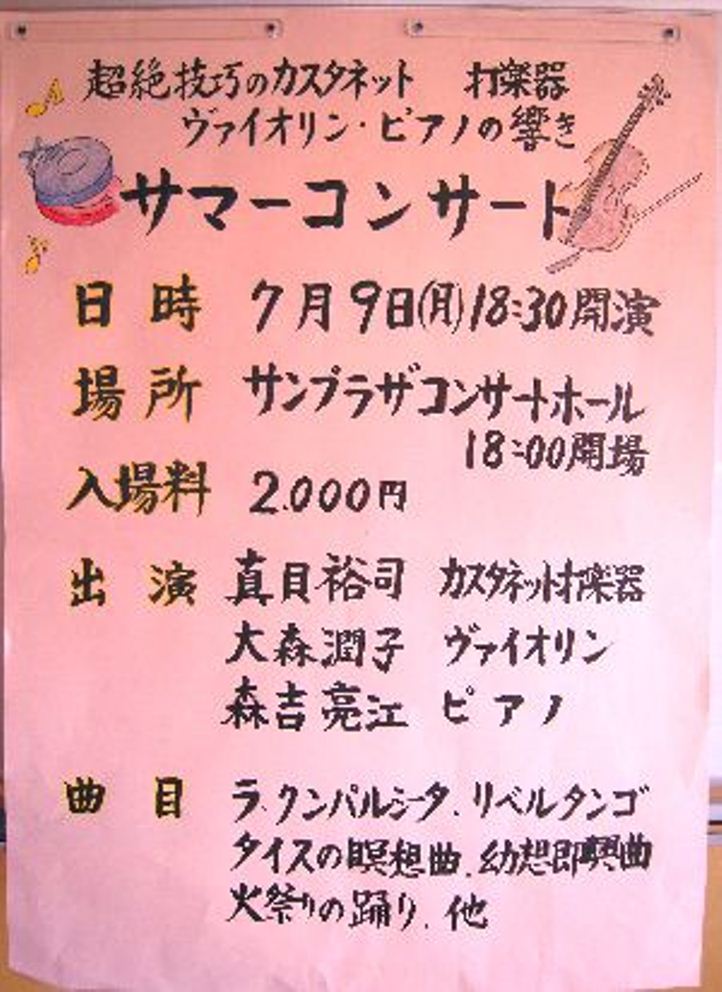 超絶技巧のカスタネット 打楽器
ヴァイオリン・ピアノの響き
サマーコンサート
日時 7月9日(月)18:30開演
場所 サンプラザコンサートホール
18:00開場
入場料 2.000円
出演 真貝裕司 カスタネット打楽器
大森潤子 ヴァイオリン
森吉亮江 ピアノ
曲目 ラ.クンパルシータ.リベルタンゴ
タイスの瞑想曲.幻想即興曲
火祭りの踊り.他